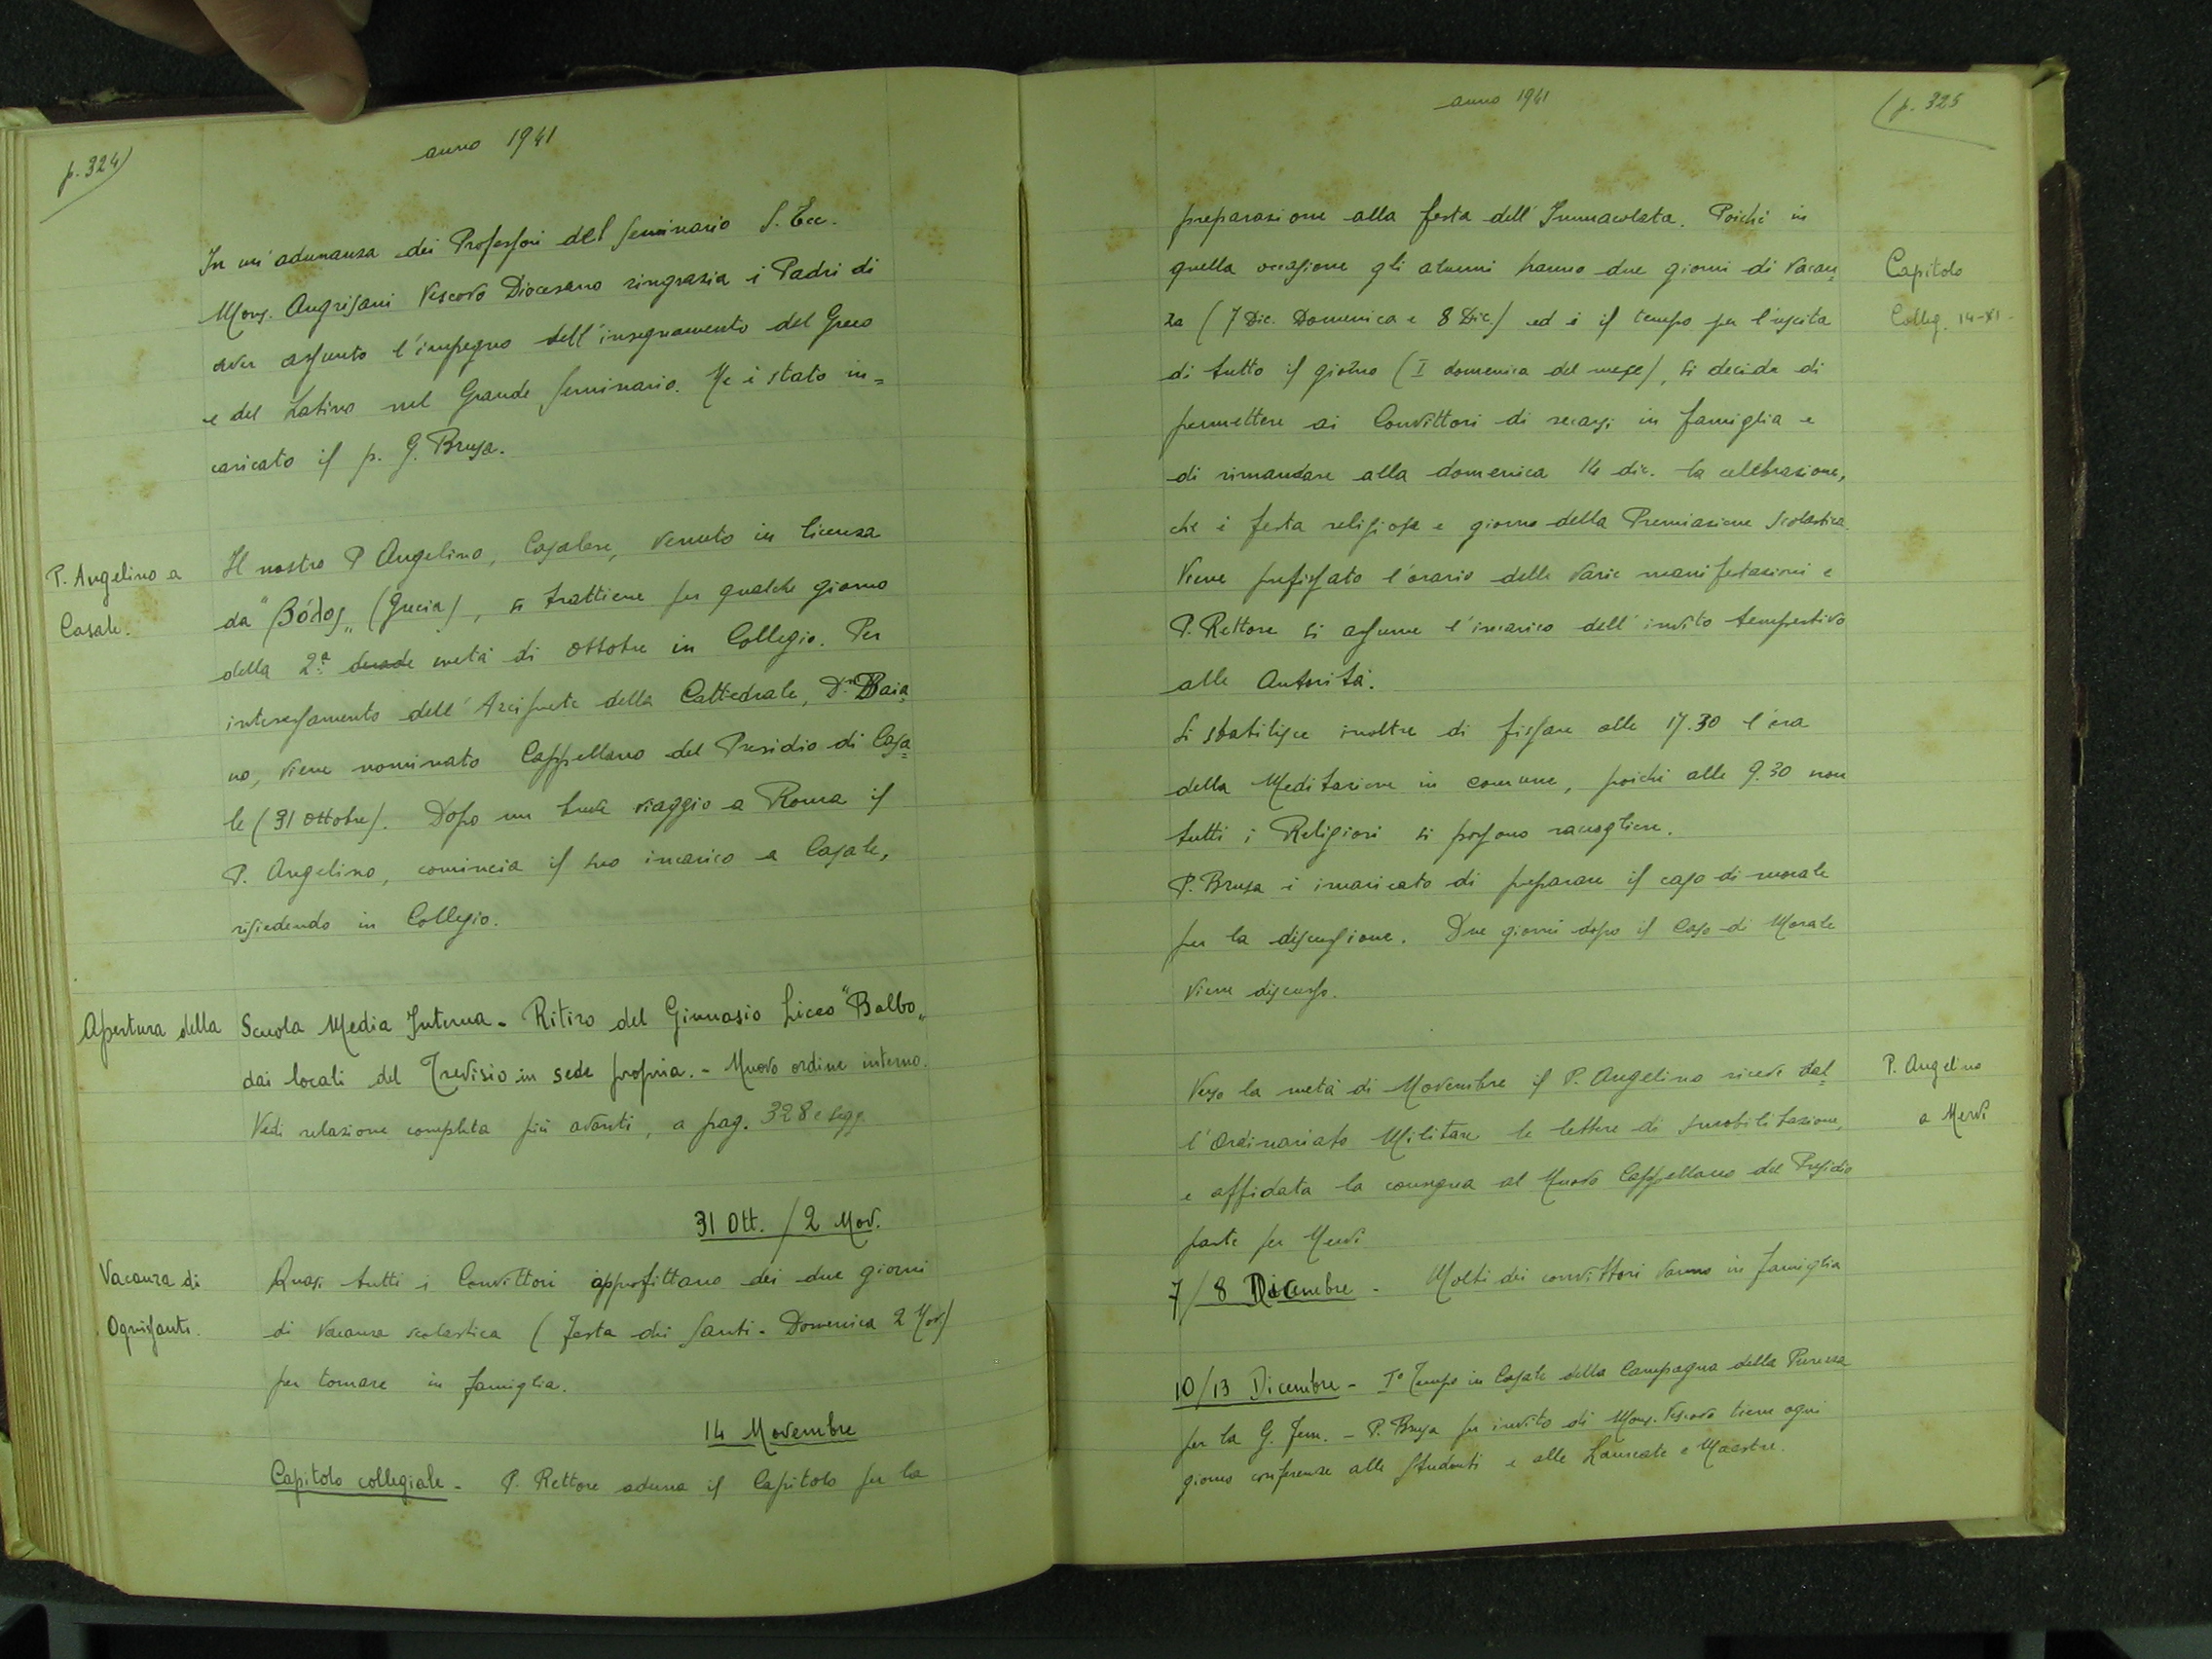 p. 324)
anno 1941
In un'adunanza dei Professori del Seminario S. Ecc.
Mons. Angrisani Vescovo Diocesano ringrazia i Padri di
aver assunto l'impegno dell'insegnamento del Greco
e del Latino nel Grande Seminario. Ne è stato in=
caricato il p. G. Brusa.
P. Angelino a
Casale.
Il nostro P Angelino, Casalese, venuto in licenza
da "Βόλος„ (Grecia), si trattiene per qualche giorno
della 2.a decade metà di ottobre in Collegio. Per
interessamento dell'Arciprete della Cattedrale, D.n Baia=
no, viene nominato Cappellano del Presidio di Casa=
le (31 ottobre). Dopo un breve viaggio a Roma il
P. Angelino, comincia il suo incarico a Casale,
risiedendo in Collegio.
Apertura della Scuola Media Interna - Ritiro del Ginnasio Liceo "Balbo„
dai locali del Trevisio in sede propria. - Nuovo ordine interno.
Vedi relazione completa più avanti, a pag. 328 e segg.
31 Ott. / 2 Nov.
Vacanza di
Ognisanti.
Quasi tutti i Convittori approfittano dei due giorni
di vacanza scolastica (Festa dei Santi - Domenica 2 Nov)
per tornare in famiglia.
14 Novembre
Capitolo collegiale - P. Rettore aduna il Capitolo per la
anno 1941
(p. 325
preparazione alla festa dell'Immacolata. Poichè in
quella occasione gli alunni hanno due giorni di vacan=
za (7 Dic. Domenica e 8 Dic.) ed è il tempo per l'uscita
di tutto il giorno (I domenica del mese), si decide di
permettere ai Convittori di recarsi in famiglia e
di rimandare alla domenica 14 dic. la celebrazione,
che è festa religiosa e giorno della Premiazione Scolastica.
Viene prefissato l'orario delle varie manifestazioni e
P. Rettore si assume l'incarico dell'invito tempestivo
alle Autorità.
Si stabilisce inoltre di fissare alle 17.30 l'ora
della Meditazione in comune, poichè alle 9.30 non
tutti i Religiosi si possono raccogliere.
P. Brusa è incaricato di preparare il caso di morale
per la discussione. Due giorni dopo il Caso di Morale
viene discusso.
Capitolo
Colleg. 14-XI-
Verso la metà di Novembre il P. Angelino riceve dal=
l'Ordinariato Militare le lettere di smobilitazione,
e affidata la consegna al Nuovo Cappellano del Presidio
parte per Nervi
P. Angelino
a Nervi
7/8 Dicembre - Molti dei convittori vanno in famiglia
10/13 Dicembre - I° Tempo in Casale della Campagna della Purezza
per la G. Fem. - P. Brusa per invito di Mons. Vescovo tiene ogni
giorno conferenze alle Studenti e alle Laureate e Maestre.